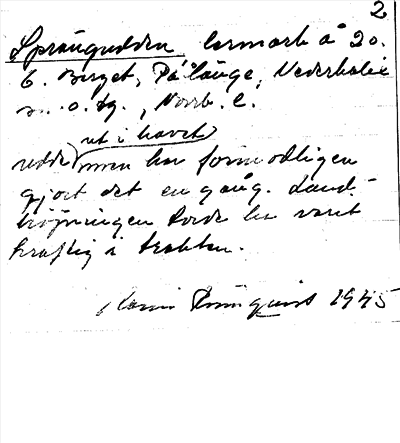 2
Språngudden, lermark å 20.
6. Berget, Pålänge, Nederkalix
sn. o. tg., Norrb. l.
ut i havet
udde men har förmodligen
gjort det en gång. Land-
höjningen torde ha varit
kraftig i trakten.
Karin 1945